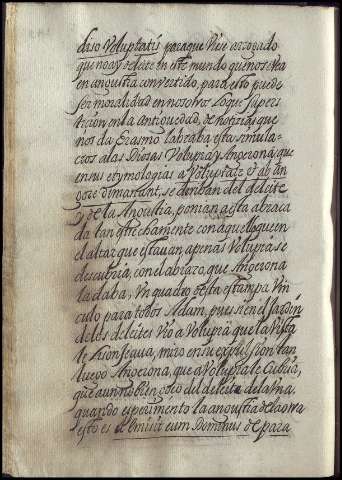 diso Voluptatis paraque Viese arrojado
que no ay deleite en este mundo que no sea
en angustia convertido, para esto puede
ser moralidad en nosotros lo que supers
ticion en la Antiguedad, de noticias que
nos da Erasmo labraba esta simula-
cros a las Diosas Volupia y Angerona, que
en sus etymologias a Voluptate et ab an
gore dimastant, se denban del deleite
y de la Angustia, ponian a esta abraca
da tan estrechamente con aquella que en
el altar que estavan apenas Volupia se
descubria, con el abrazo, que Angerona
la daba, Un quadro de esta estampa Vin
culo para todos Adam, pues si en el Jardin
de los deleites vio a Volupia que la Vista
le lisonjeaua, miro en su expulsion tan
luego Angerona, que a Voluptate Cubria,
que aun no bien goço del deleite de la Una
quando esperimento la angustia de la otra
esto es et emisit eum Dominus de para